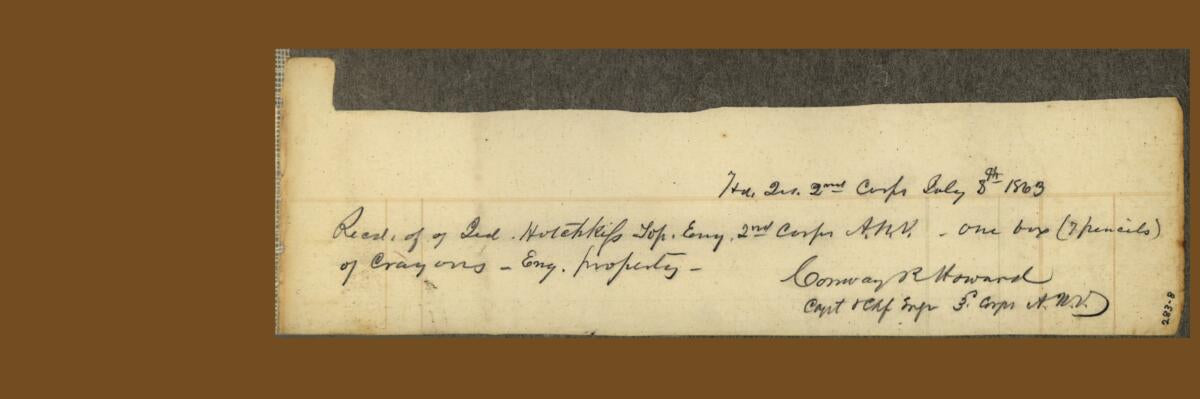 Hd. Qrs. 2nd Corps July 8th 1863
Recd. of Jed. Hotchkiss Top. Eng. 2nd Corps A.N.V. - one box (7 pencils)
of Crayons - Eng. property -
Conway R Howard
Capt & Chf Engr 3d. Corps A.N.V.
283-8